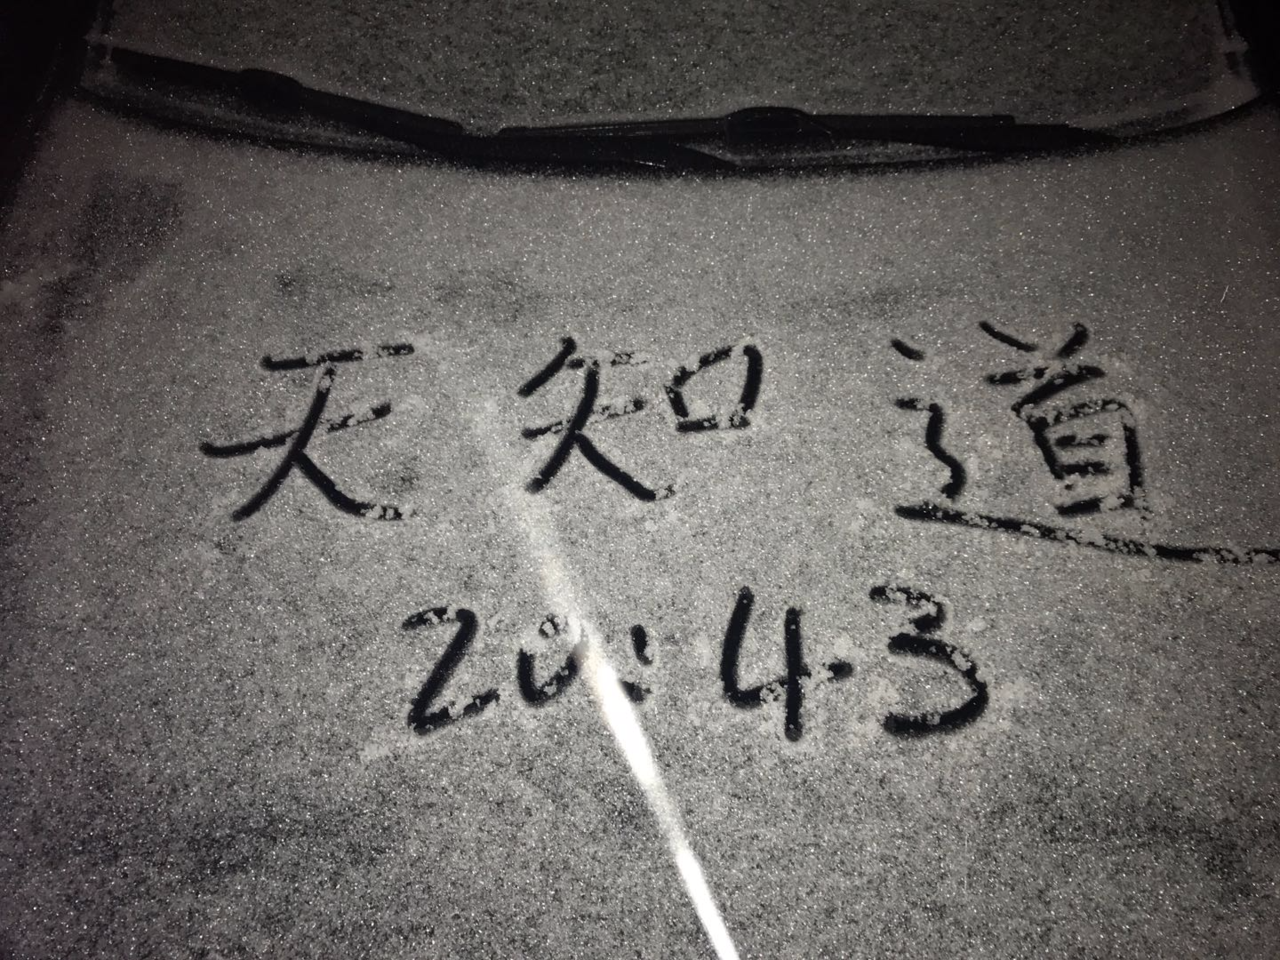 天知道
20:43